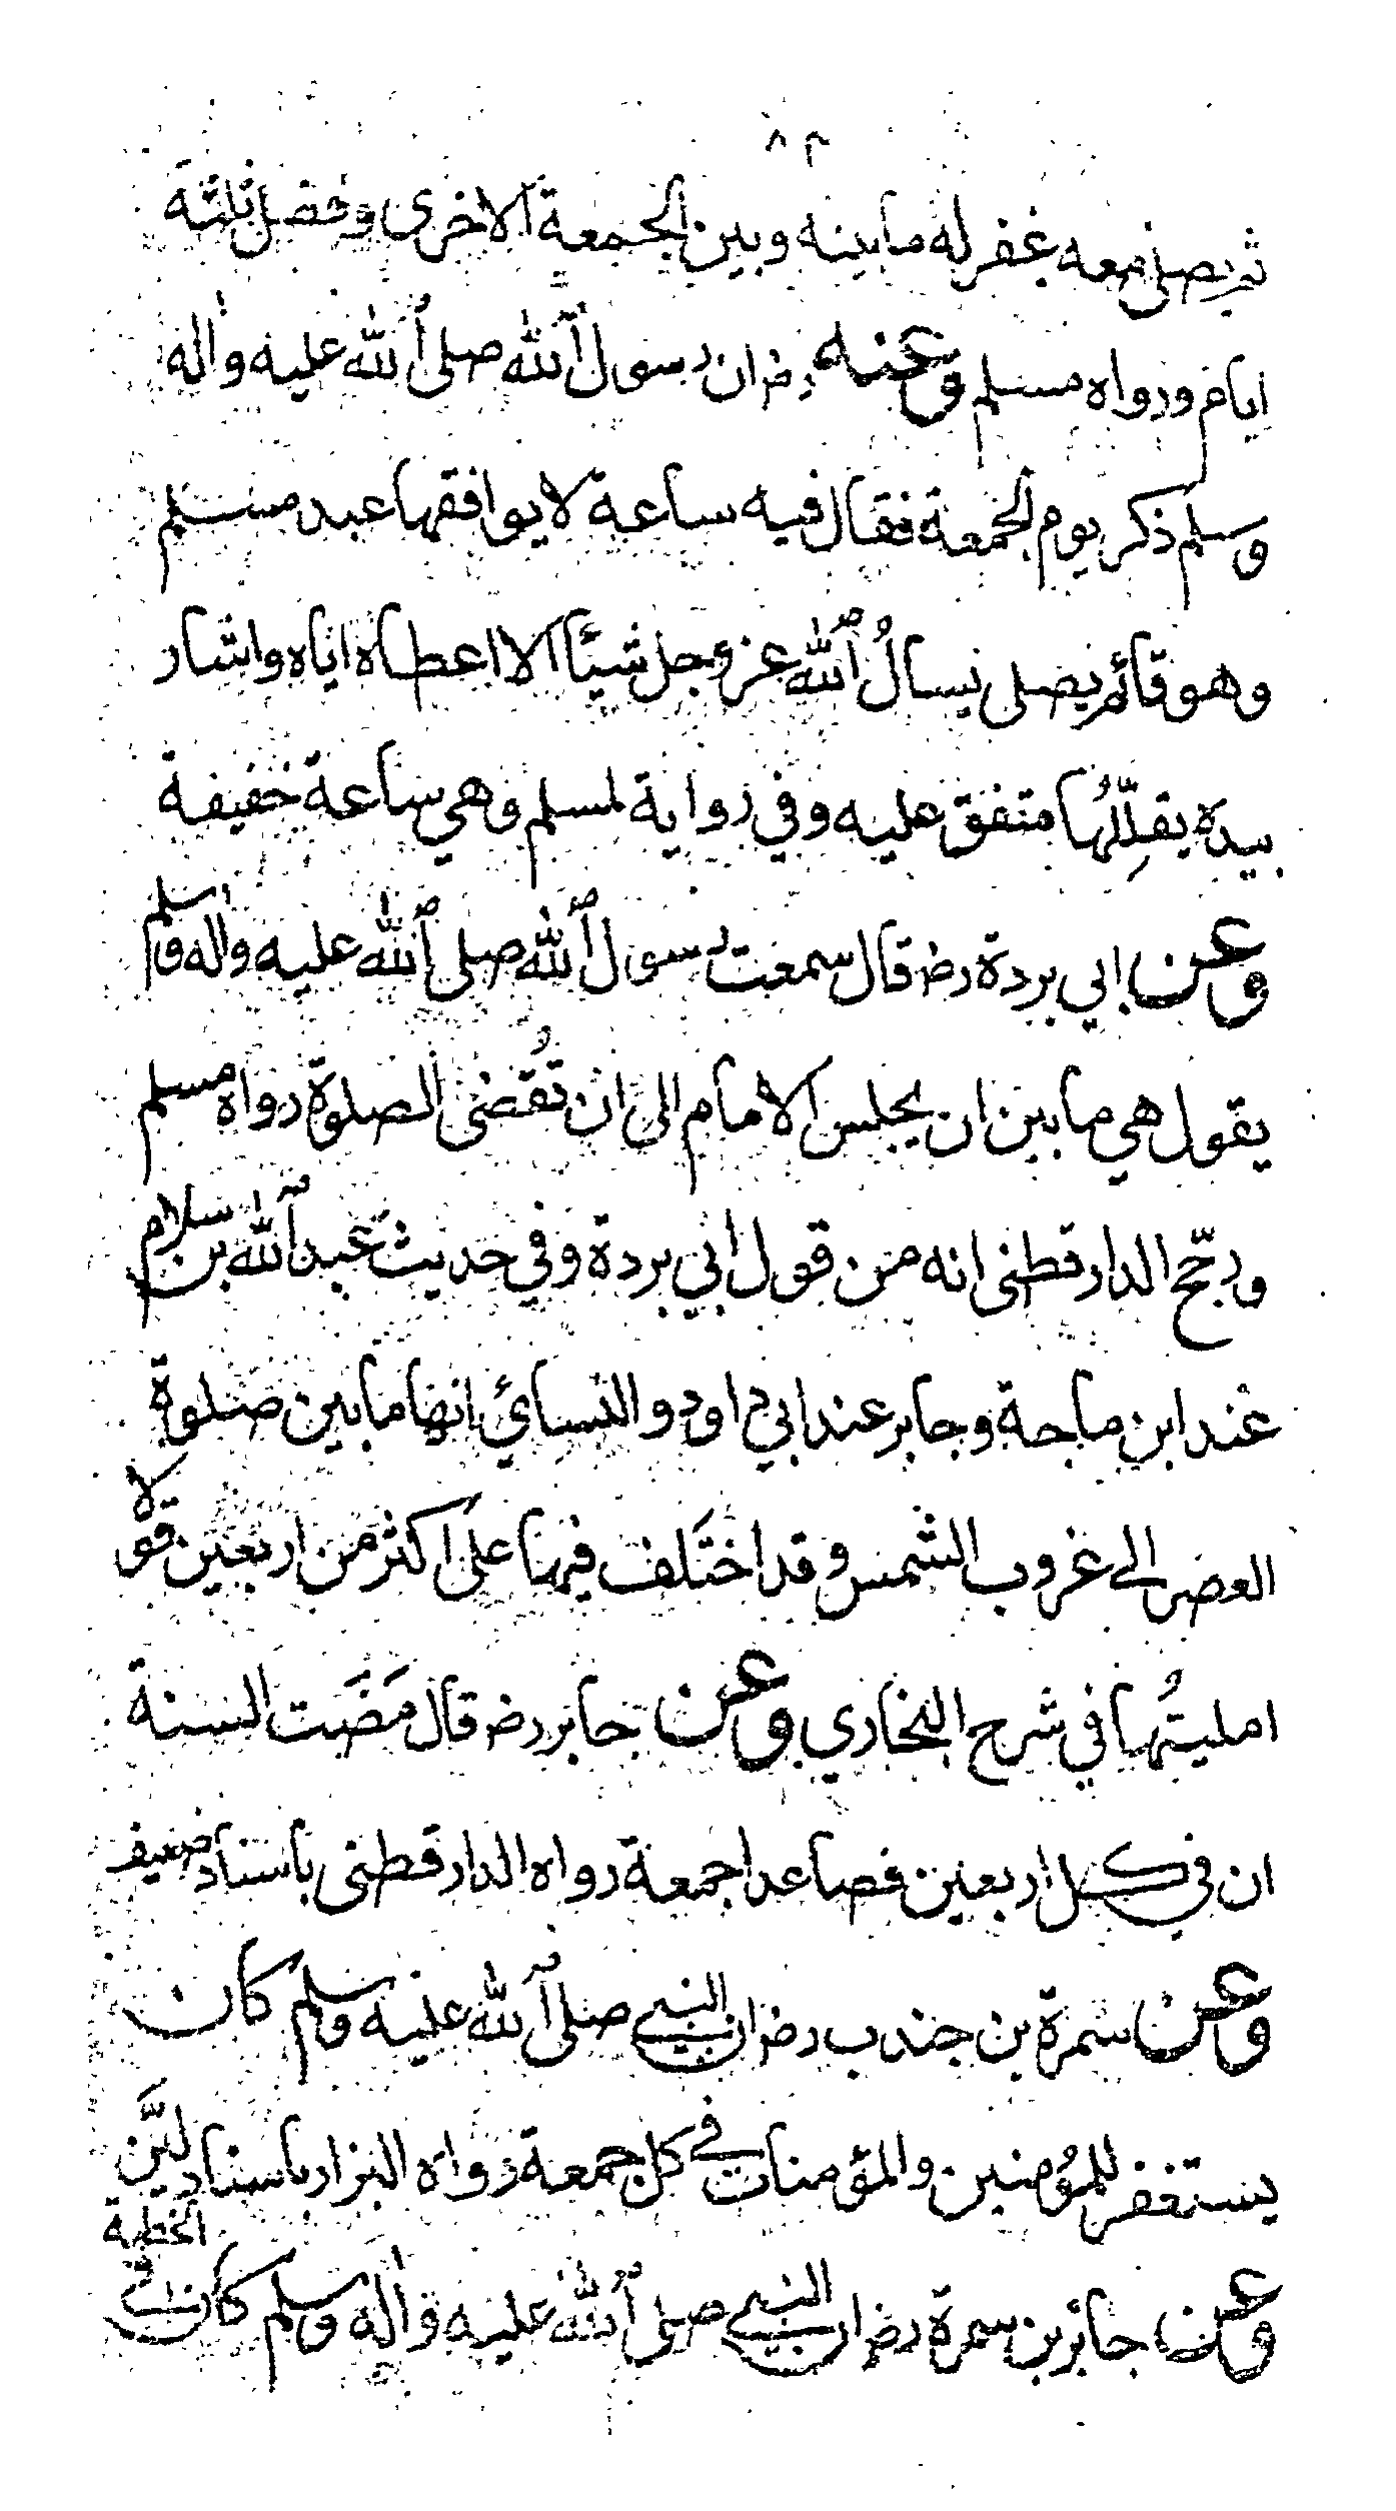 ٨٣
ثم يصلى معه غفر له ما بينه وبين الجمعة الاخرى وفضل ثلثة
ايام ورواه مسلم وعنه رض ان رسول الله صلى الله عليه واله
وسلم ذكر يوم الجمعة فقال فيه ساعة لا يوافقها عبد مسلم
وهو قائم يصلى يسالُ الله عز وجل شيئا الا اعطاه اياه واشار
بيده يقلِّلُها متفق عليه وفي رواية لمسلم وهي ساعة خفيفة
وعن ابي بردة رض قال سمعت رسول الله صلى الله عليه واله وسلم
يقول هي ما بين ان يجلس الامام الى ان تُقضى الصلوة رواه مسلم
ورجّح الدارقطنى انه من قول ابي بردة وفي حديث عبد الله بن سلام
عند ابن ماجة وجابر عند ابي داود والنسائي انها ما بين صلوة
العصر الى غروب الشمس وقد اختَلف فيها على اكثر من اربعين قولا
امليتُها في شرح البخاري وعن جابر رض قال مَضَت السنة
ان في كل اربعين فصاعدا جمعة رواه الدارقطنى باسناد ضعيف
وعن سمرة بن جندب رض ان النبي صلى الله عليه وسلم كان
يستغفر للمؤمنين والمؤمنات في كل جمعة رواه البزار باسناد ليّن
وعن جابر بن سمرة رض ان النبي صلى الله عليه واله وسلم كان في الخطبة